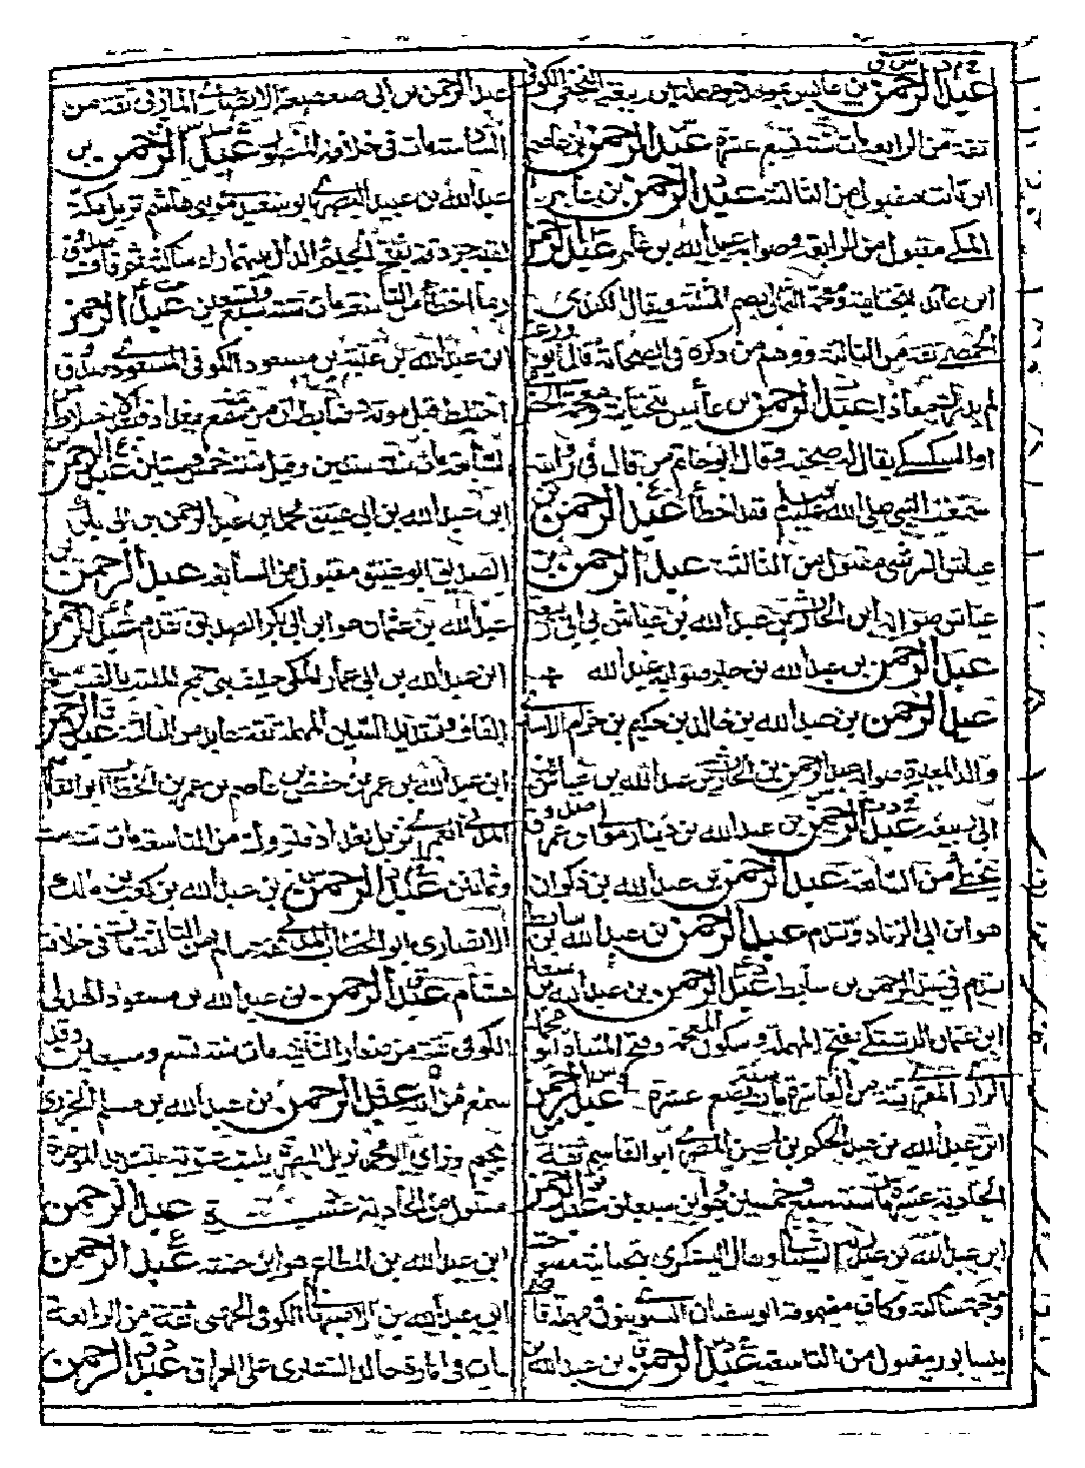 عبد الرحمن بن عابس بموحدة ومهملة بن ربيعة النخعي الكوفي
ثقة من الرابعة مات سنة تسع عشرة عبد الرحمن بن عاصم
ابن ثابت مقبول من الثالثة عبد الرحمن بن عامر
المكي مقبول من الرابعة وصوابه عبيد الله بن عامر عبد الرحمن
ابن عائذ بتحتانية ومعجمة الثمالي بضم المثلثة ويقال الكندي
الحمصي ثقة من الثالثة ووهم من ذكره في الصحابة قال ابو زرعة
لم يدرك معاذا عبد الرحمن بن عائش بتحتانية ومعجمة الحضرمي
او السكسكي يقال له صحبة وقال ابو حاتم من قال في روايته
سمعت النبي صلى الله عليه وسلم فقد اخطأ عبد الرحمن بن
عباس القرشي مقبول من الثالثة عبد الرحمن بن
عياش صوابه ابن الحارث بن عبد الله بن عياش بن ابي ربيعة
عبد الرحمن بن عبد الله بن جابر صوابه عبد الله
عبد الرحمن بن عبد الله بن خالد بن حكيم بن حزام الاسدي
والد المغيرة صوابه عبد الرحمن بن الحارث بن عبد الله بن عياش بن
ابي ربيعة عبد الرحمن بن عبد الله بن دينار مولى ابن عمر صدوق
يخطئ من السابعة عبد الرحمن بن عبد الله بن ذكوان
هو ابن ابي الزناد وتقدم عبد الرحمن بن عبد الله بن سابط
تقدم في عبد الرحمن بن سابط عبد الرحمن بن عبد الله بن سعد
ابن عثمان الدشتكي بفتح المهملة وسكون المعجمة وفتح المثناة ابو محمد
الرازي المقرئ ثقة من العاشرة مات سنة بضع عشرة عبد الرحمن
ابن عبد الله بن عبد الحكم بن اعين المصري ابو القاسم ثقة من
الحادية عشرة مات سنة سبع وخمسين وهو ابن سبعين عبد الرحمن
ابن عبد الله بن عبد ربه الشيباني ويقال اليشكري بتحتانية مفتوحة
ومعجمة ساكنة وكاف مضمومة ابو سفيان النسوي نزيل قضاء
نيسابور مقبول من التاسعة عبد الرحمن بن عبد الله بن
عبد الرحمن بن ابي صعصعة الانصاري المازني ثقة من
السادسة مات في خلافة المنصور عبد الرحمن بن
عبد الله بن عبيد البصري ابو سعيد مولى بني هاشم نزيل مكة
لقبه جردقة بفتح الجيم والدال بينهما راء ساكنة ثم قاف صدوق
ربما اخطأ من التاسعة مات سنة سبع وتسعين عبد الرحمن
ابن عبد الله بن عتبة بن مسعود الكوفي المسعودي صدوق
اختلط قبل موته وضابطه ان من سمع منه ببغداد فبعد الاختلاط
من السابعة مات سنة ستين وقيل سنة خمس وستين عبد الرحمن
ابن عبد الله بن ابي عتيق محمد بن عبد الرحمن بن ابي بكر
الصديق ابو عتيق مقبول من السابعة عبد الرحمن بن
عبد الله بن عثمان هو ابن ابي بكر الصديق تقدم عبد الرحمن
ابن عبد الله بن ابي عمار المكي حليف بني جمح الملقب بالقس بفتح
القاف وتشديد السين المهملة ثقة عابد من الثالثة عبد الرحمن
ابن عبد الله بن عمر بن حفص بن عاصم بن عمر بن الخطاب ابو القاسم
المدني العمري نزيل بغداد متروك من التاسعة مات سنة ست
وثمانين عبد الرحمن بن عبد الله بن كعب بن مالك
الانصاري ابو الخطاب المدني ثقة عالم من الثالثة مات في خلافة
هشام عبد الرحمن بن عبد الله بن مسعود الهذلي
الكوفي ثقة من صغار الثانية مات سنة تسع وسبعين وقد
سمع من ابيه عبد الرحمن بن عبد الله بن مسلم الجزري
بجيم وزاي ابو محمد نزيل البصرة
مقبول من الحادية عشرة عبد الرحمن
ابن عبد الله بن المطاع هو ابن حسنة عبد الرحمن
ابن عبد الله بن الاصبهاني الكوفي الجهني ثقة من الرابعة
مات في امارة خالد القسري على العراق عبد الرحمن